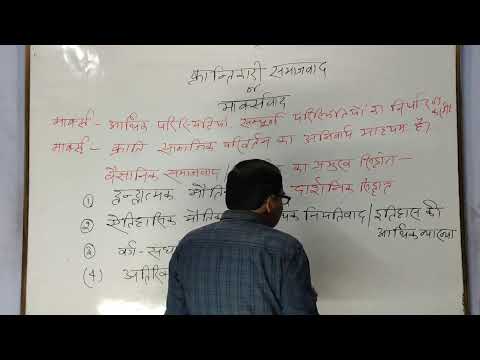 क्रान्तिकारी समाजवाद
or
मार्क्सवाद
मार्क्स - आर्थिक परिस्थितियाँ सम्पूर्ण परिस्थितियों का निर्धारण करती
मार्क्स - क्रांति सामाजिक परिवर्तन का अनिवार्य माध्यम है।
वैज्ञानिक समाजवाद / का प्रमुख सिद्धांत -
① द्वन्द्वात्मक दार्शनिक सिद्धांत
② ऐतिहासिक नियतिवाद / इतिहास की
आर्थिक व्याख्या
③ वर्ग-
(4)